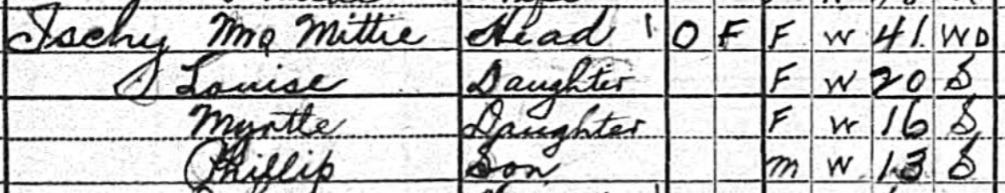 Ischy Mrs Mittie Head 1 O F F W 41 WD
Louise Daughter F W 20 S
Myrtle Daughter F W 16 S
Phillip Son M W 13 S